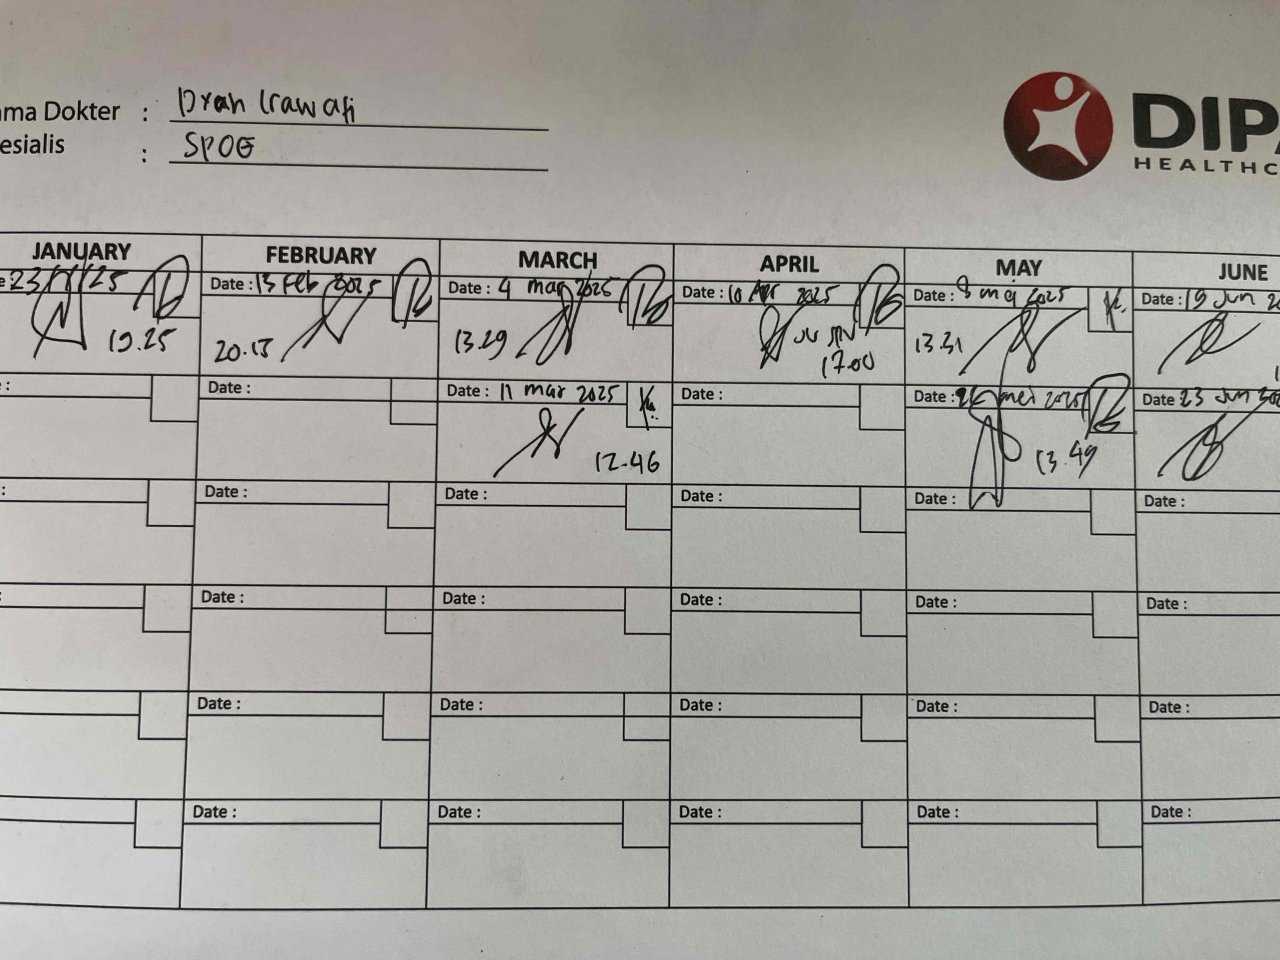 ama Dokter : Dyah Irawati
esialis : SPOG
DIPA
HEALTHC
JANUARY FEBRUARY MARCH APRIL MAY JUNE
e 23/1/25 Date : 13 Feb 2025 Date : 4 mar 2025 Date : 10 Apr 2025 Date : 8 mei 2025 Date : 19 Jun 20
19.25 20.15 13.29 17.00 13.31
: Date : Date : 11 mar 2025 Date : Date : mei 2025 Date 23 Jun 202
12.46 13.49
: Date : Date : Date : Date : Date :
: Date : Date : Date : Date : Date :
Date : Date : Date : Date : Date :
Date : Date : Date : Date : Date :